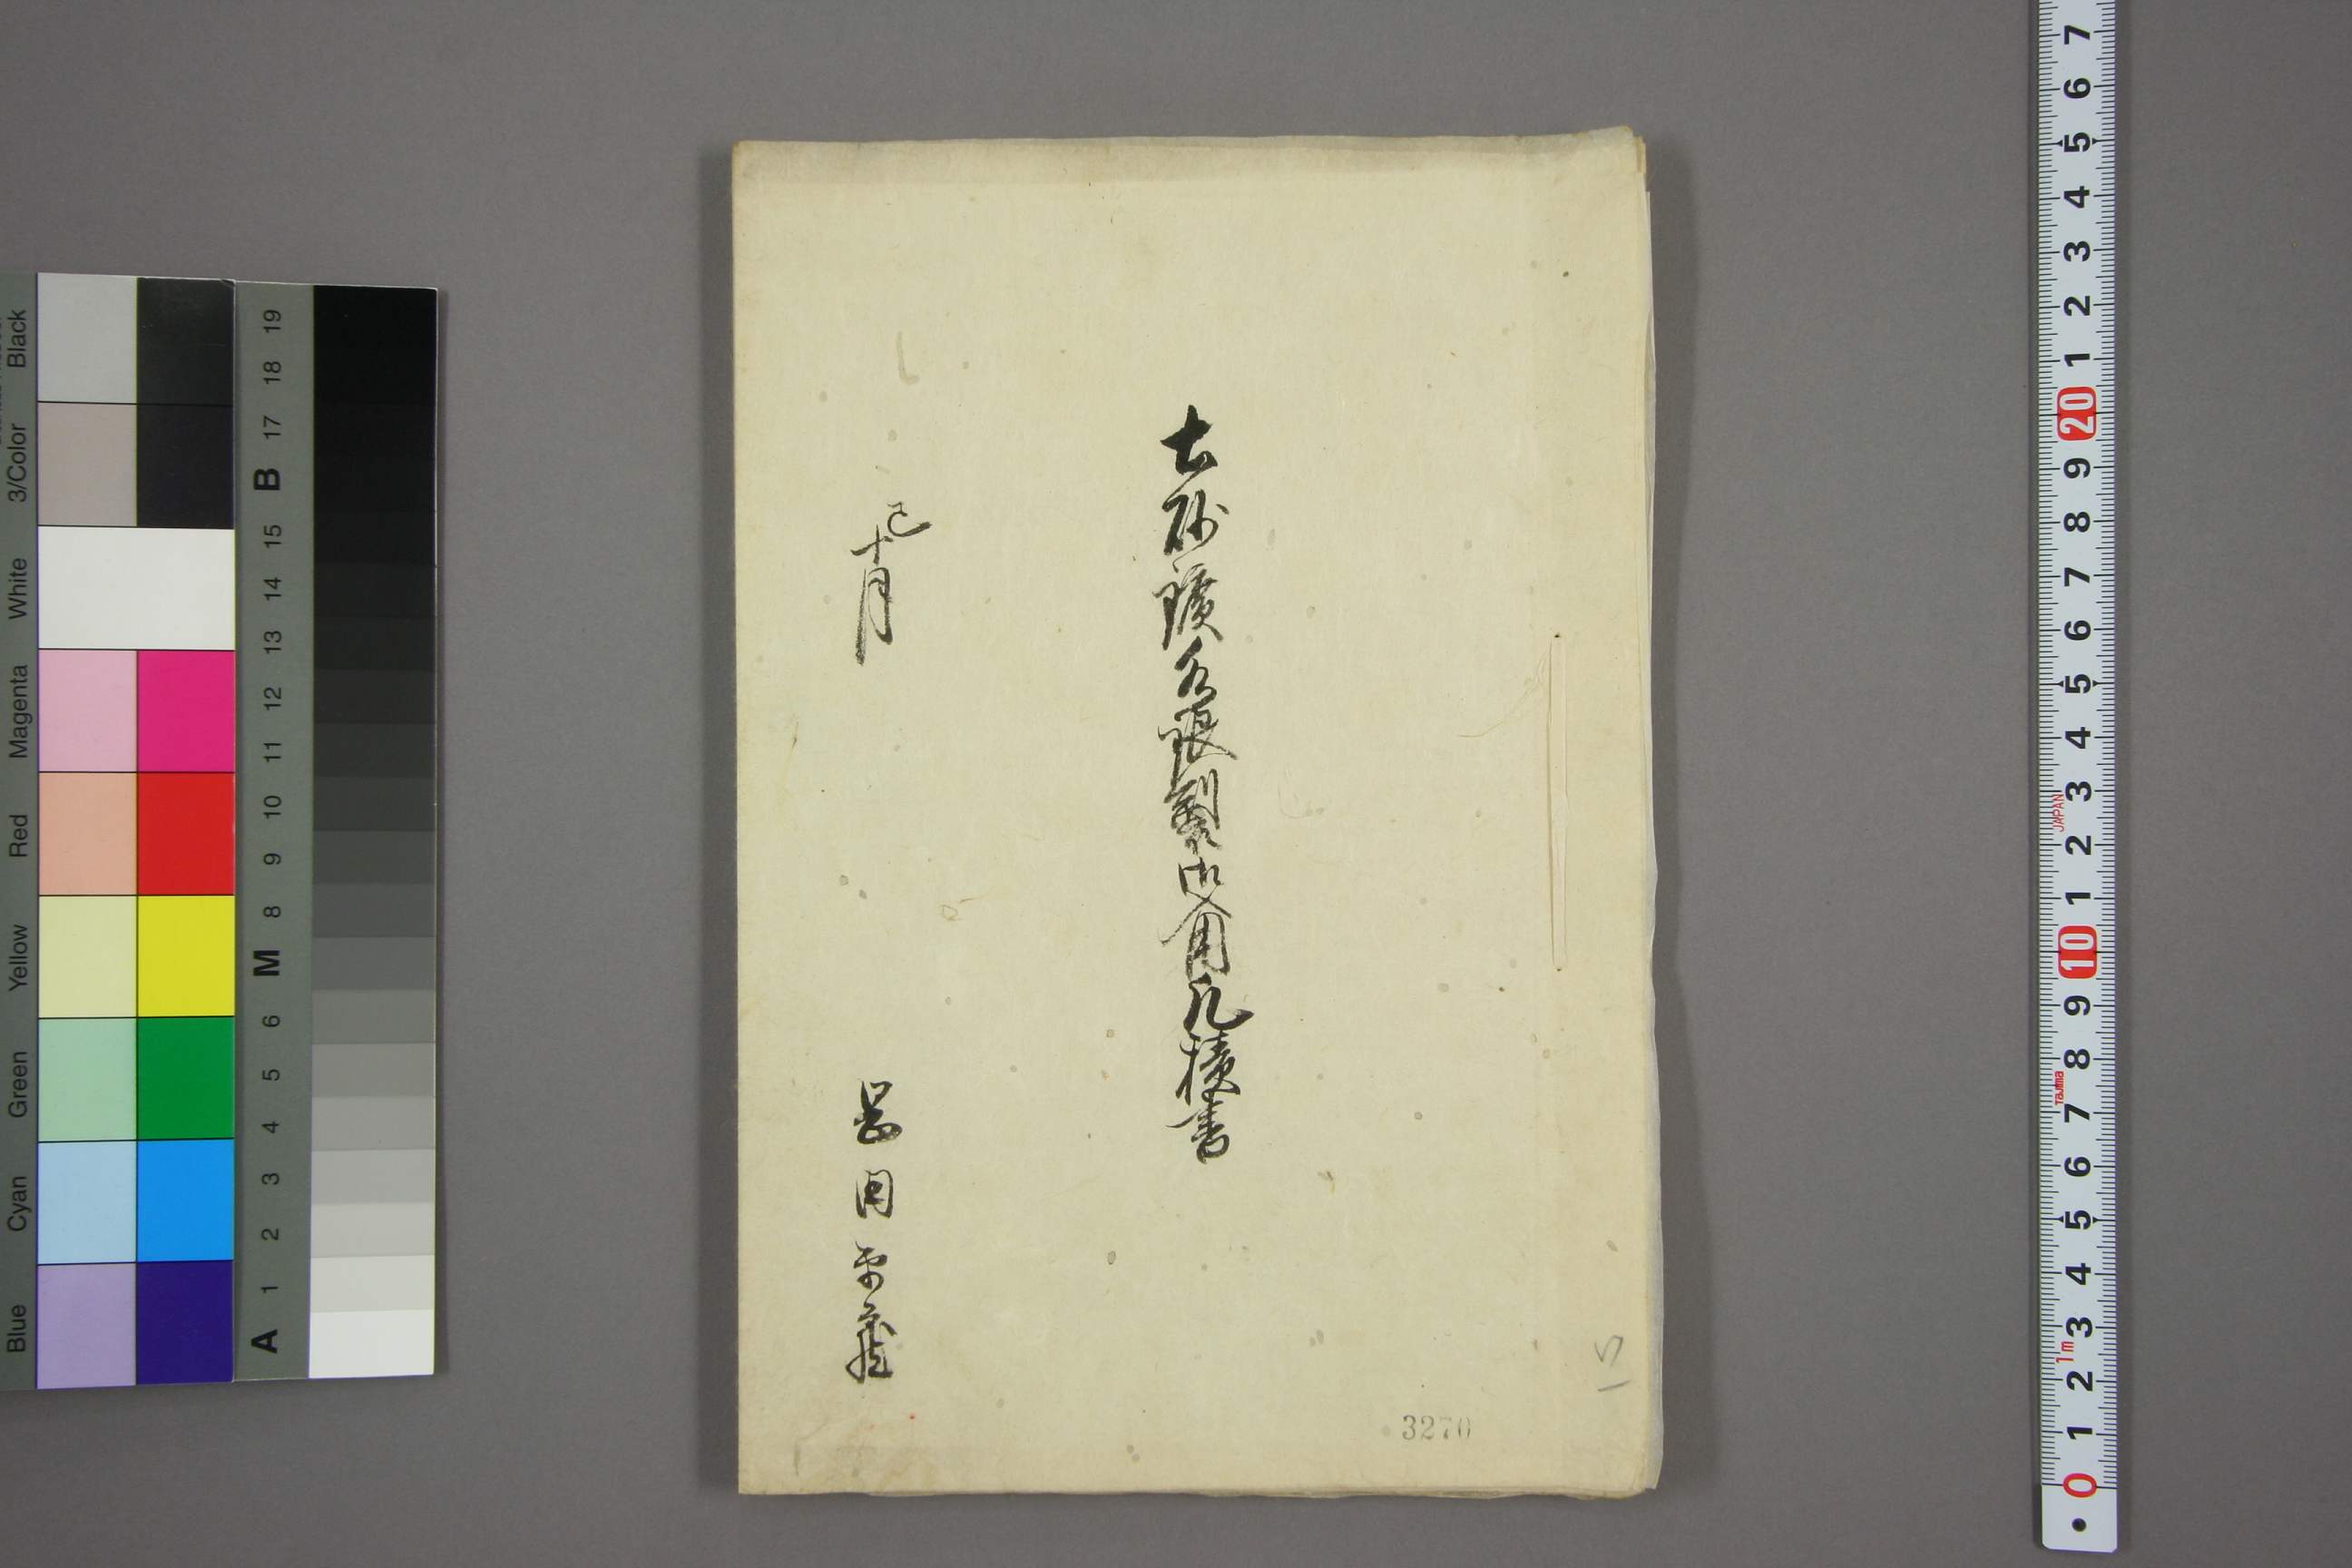 土砂鑛水銀製御入用凡積書
巳十月
岡田平蔵
3270
15
Black
3/Color
White
Magenta
Red
Yellow
Green
Cyan
Blue
19
18
17
B
15
14
13
12
11
10
9
8
M
6
5
4
3
2
1
A
7
6
5
4
3
2
1
20
9
8
7
6
5
4
3
JAPAN
2
1
10
9
8
Tajima
7
6
5
4
3
1m
2
1
0